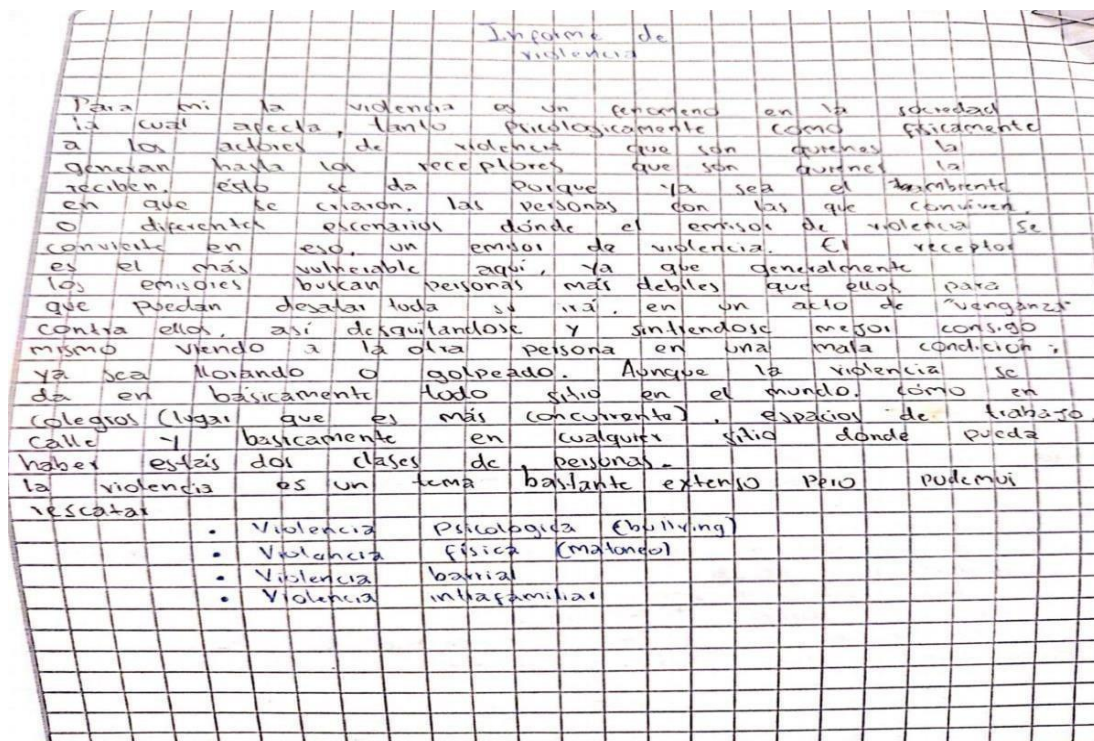 Informe de
violencia
Para mi la violencia es un fenomeno en la sociedad
la cual afecta, tanto psicologicamente como físicamente
a los actores de violencia que son quienes la
generan hasta los receptores que son quienes la
reciben. ésto se da porque ya sea el ambiente
en que se criaron, las personas con las que conviven,
o diferentes escenarios dónde el emisor de violencia se
convierte en eso, un emisor de violencia. El receptor
es el más vulnerable aquí, ya que generalmente
los emisores buscan personas más debiles que ellos para
que puedan desatar toda su irá, en un acto de "venganza"
contra ellos, así desquitandose y sintiendose mejor consigo
mismo viendo a la otra persona en una mala condición,
ya sea llorando o golpeado. Aunque la violencia se
da en básicamente todo sitio en el mundo, cómo en
colegios (lugar que es más concurrente), espacios de trabajo
calle y basicamente en cualquier sitio donde pueda
haber estás dos clases de personas.
la violencia es un tema bastante extenso pero podemos
rescatar
• Violencia Psicologica (bullying)
• Violencia física (matoneo)
• Violencia barrial
• Violencia intrafamiliar